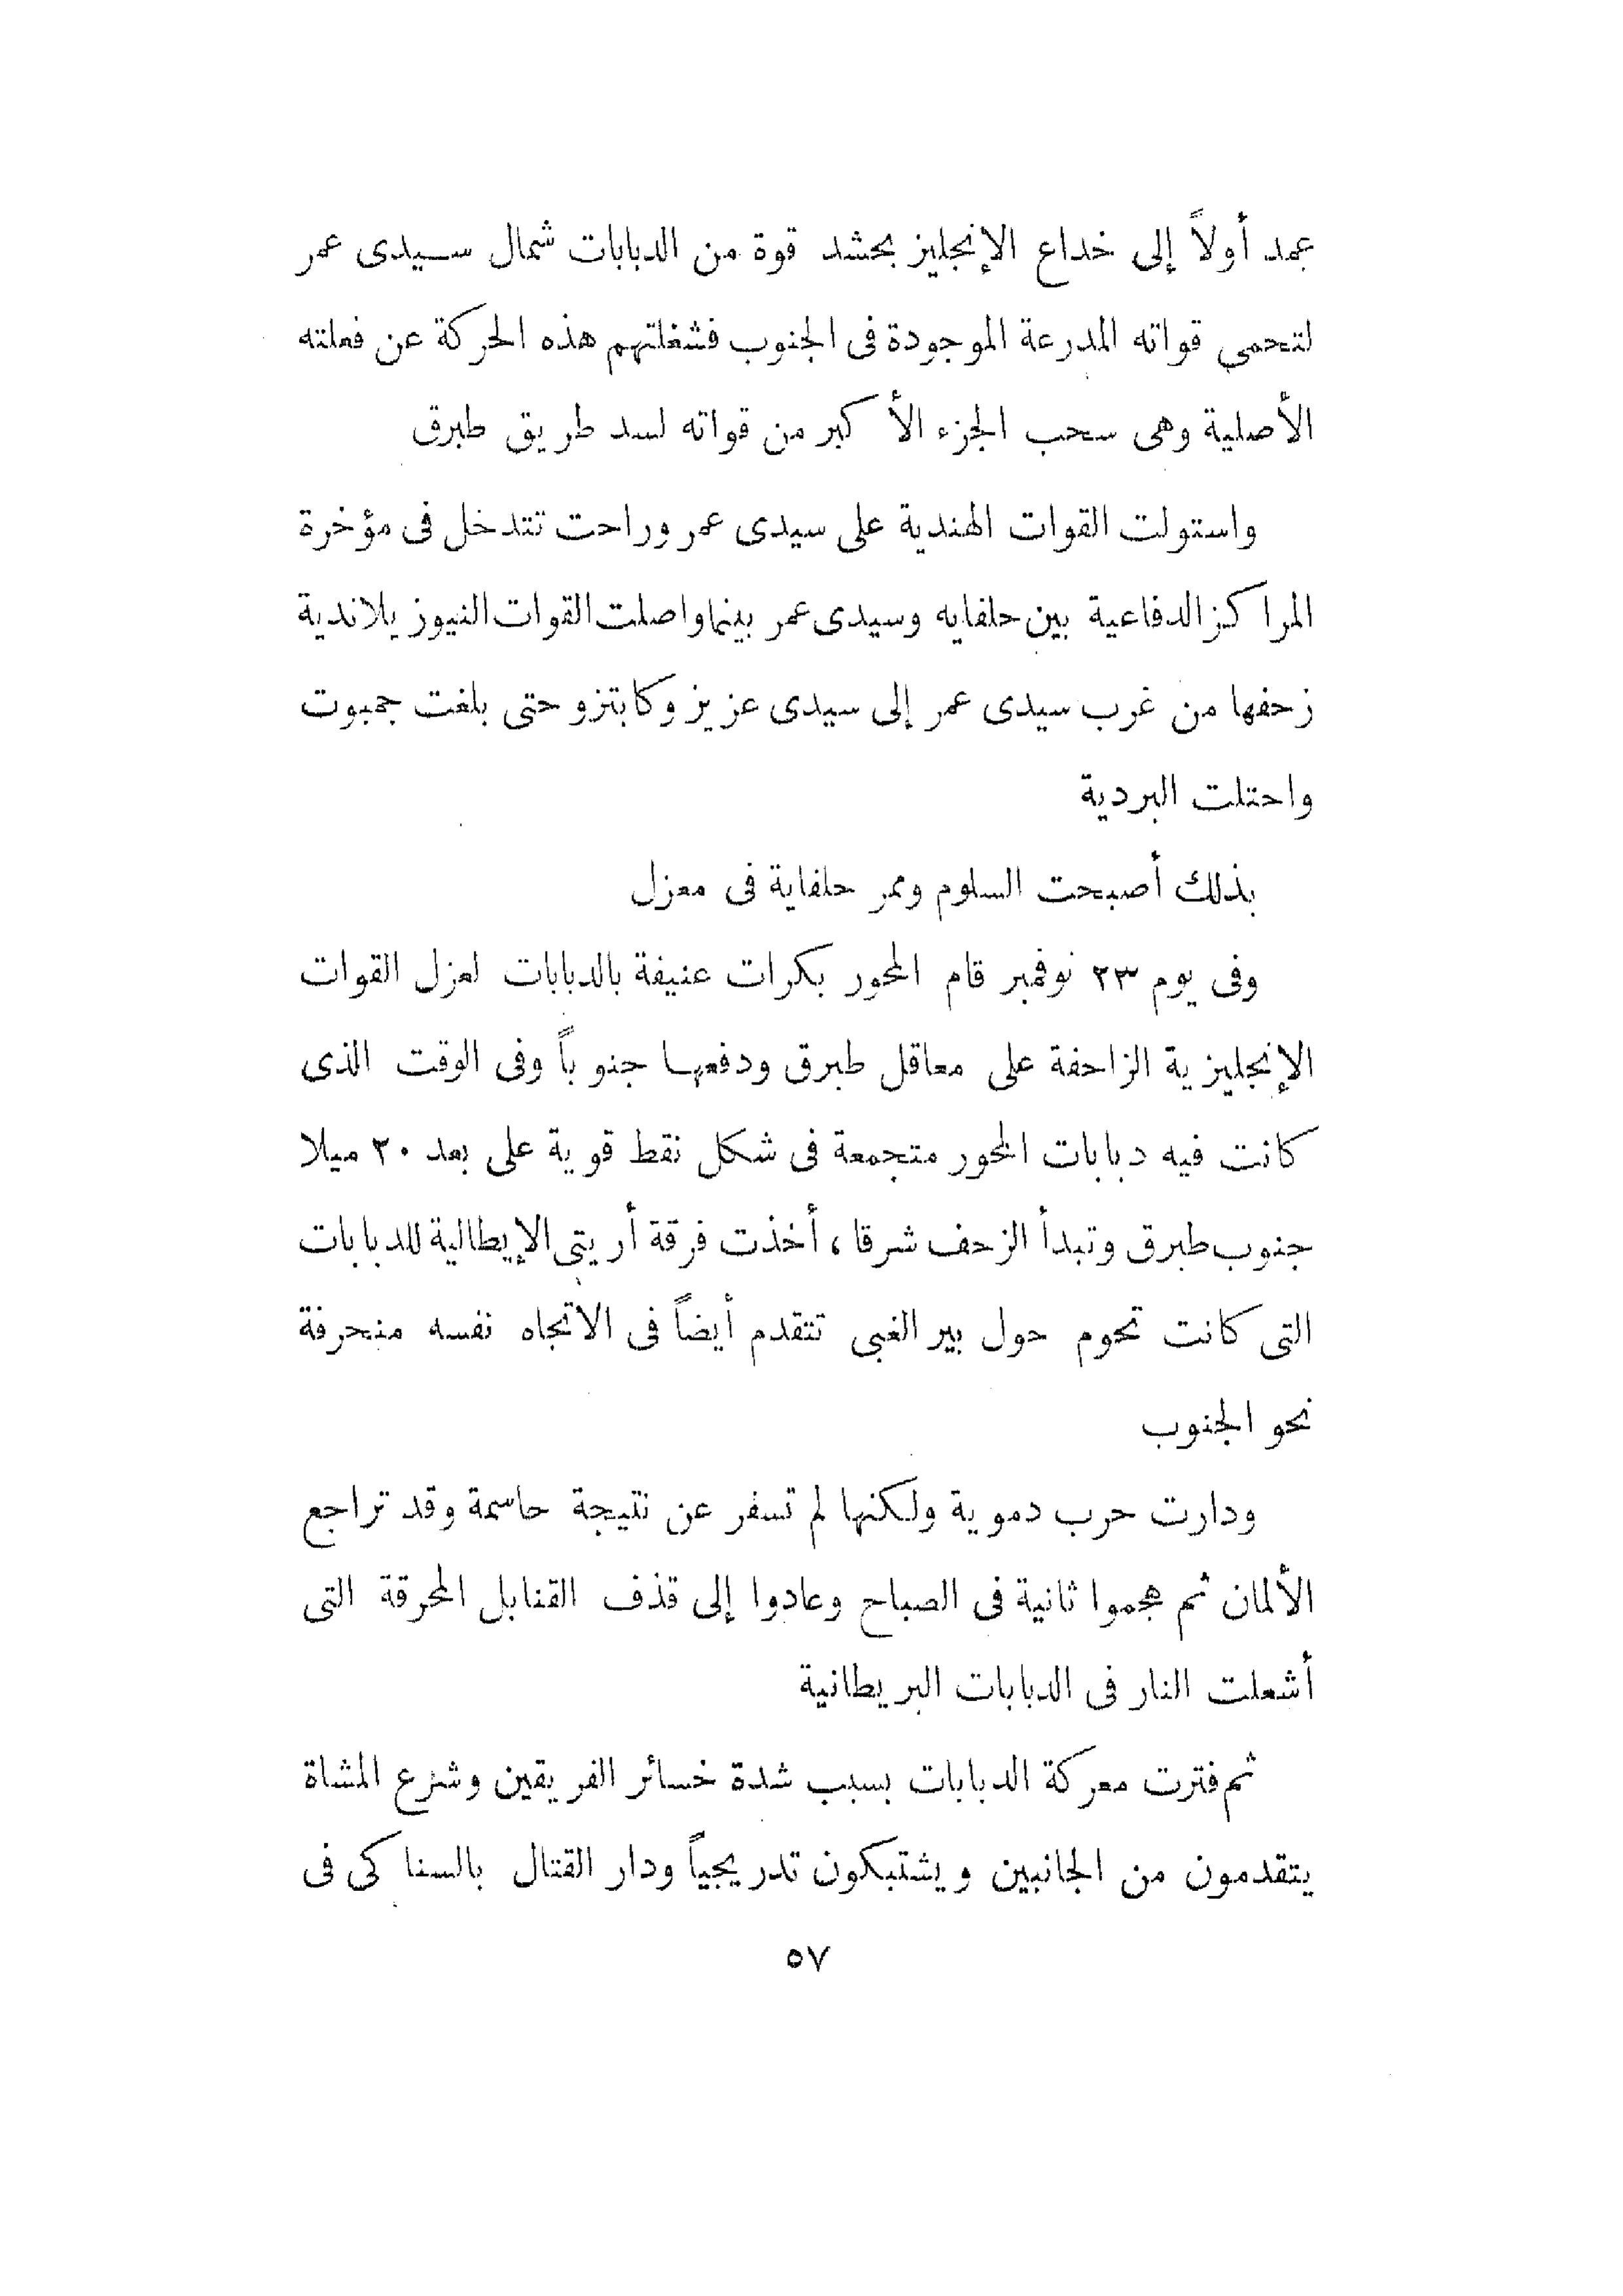 عمد أولاً إلى خداع الإنجليز بحشد قوة من الدبابات شمال سيدى عمر
لتحمى قواته المدرعة الموجودة فى الجنوب فشغلتهم هذه الحركة عن فعلته
الأصلية وهى سحب الجزء الأكبر من قواته لسد طريق طبرق
واستولت القوات الهندية على سيدى عمر وراحت تتدخل فى مؤخرة
المراكز الدفاعية بين حلفايه وسيدى عمر بينما واصلت القوات النيوزيلاندية
زحفها من غرب سيدى عمر إلى سيدى عزيز وكابتزو حتى بلغت جمبوت
واحتلت البردية
بذلك أصبحت السلوم وممر حلفاية فى معزل
وفى يوم ٢٣ نوفمبر قام المحور بكرات عنيفة بالدبابات لعزل القوات
الإنجليزية الزاحفة على معاقل طبرق ودفعها جنوباً وفى الوقت الذى
كانت فيه دبابات المحور متجمعة فى شكل نقط قوية على بعد ٢٠ ميلا
جنوب طبرق وتبدأ الزحف شرقا ، أخذت فرقة أريتى الإيطالية للدبابات
التى كانت تحوم حول بير الغبى تتقدم أيضاً فى الاتجاه نفسه منحرفة
نحو الجنوب
ودارت حرب دموية ولكنها لم تسفر عن نتيجة حاسمة وقد تراجع
الألمان ثم هجموا ثانية فى الصباح وعادوا إلى قذف القنابل المحرقة التى
أشعلت النار فى الدبابات البريطانية
ثم فترت معركة الدبابات بسبب شدة خسائر الفريقين وشرع المشاة
يتقدمون من الجانبين ويشتبكون تدريجياً ودار القتال بالسناكى فى
٥٧